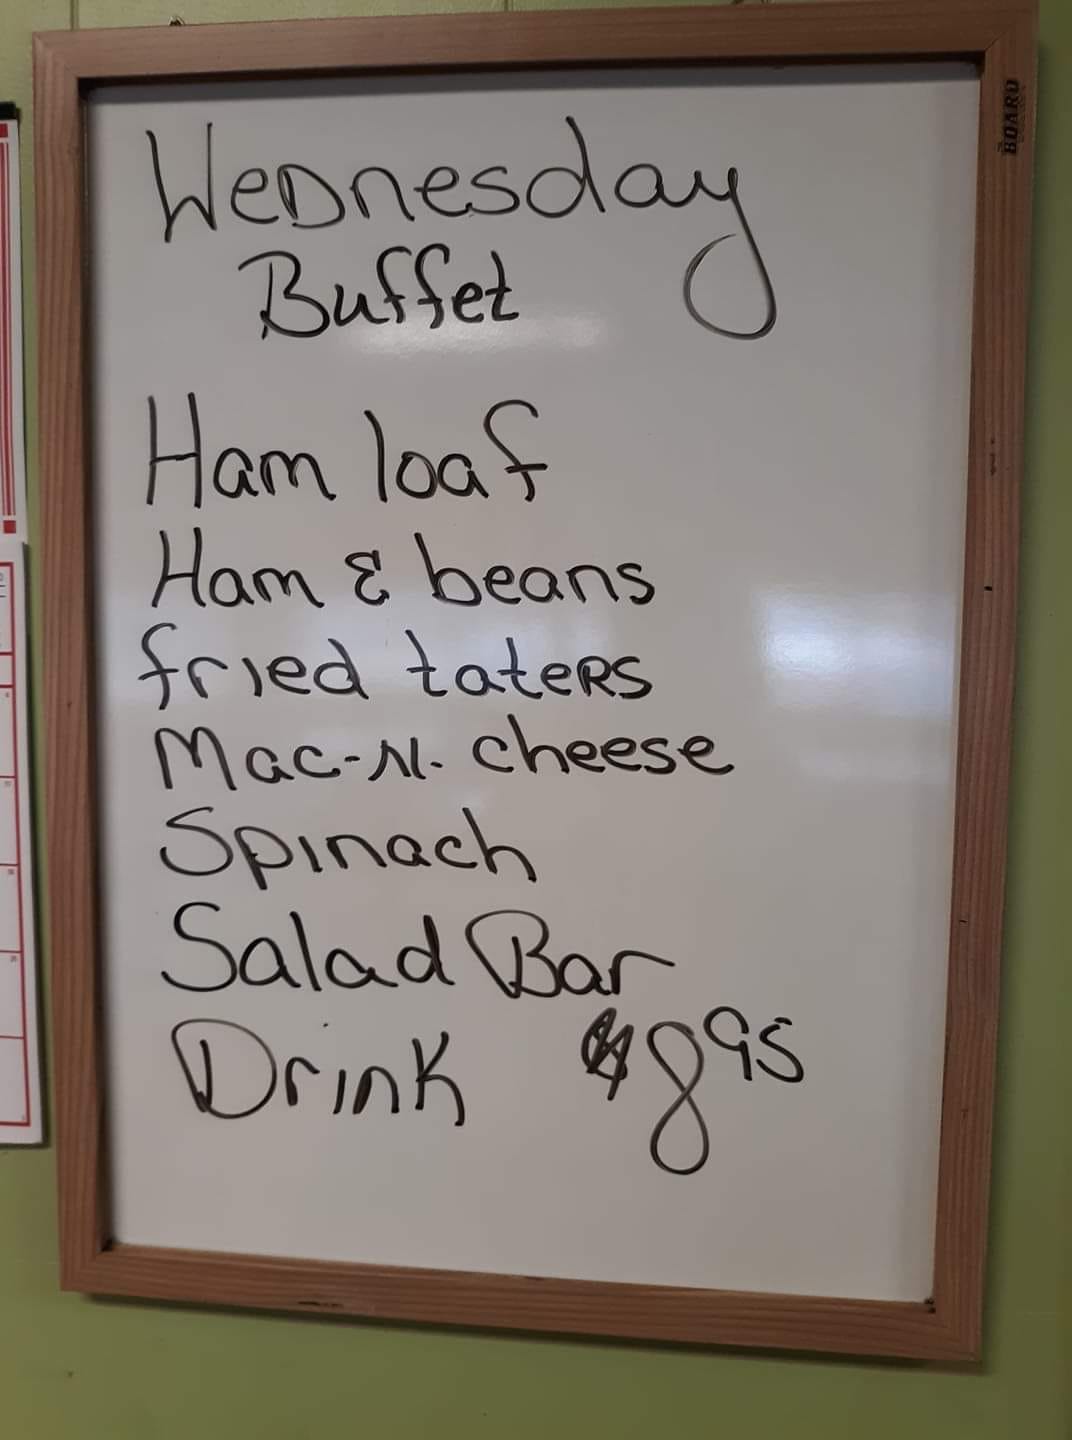 Wednesday
Buffet
Ham loaf
Ham & beans
fried taters
Mac-N-cheese
Spinach
Salad Bar
Drink $8 95
BOARD